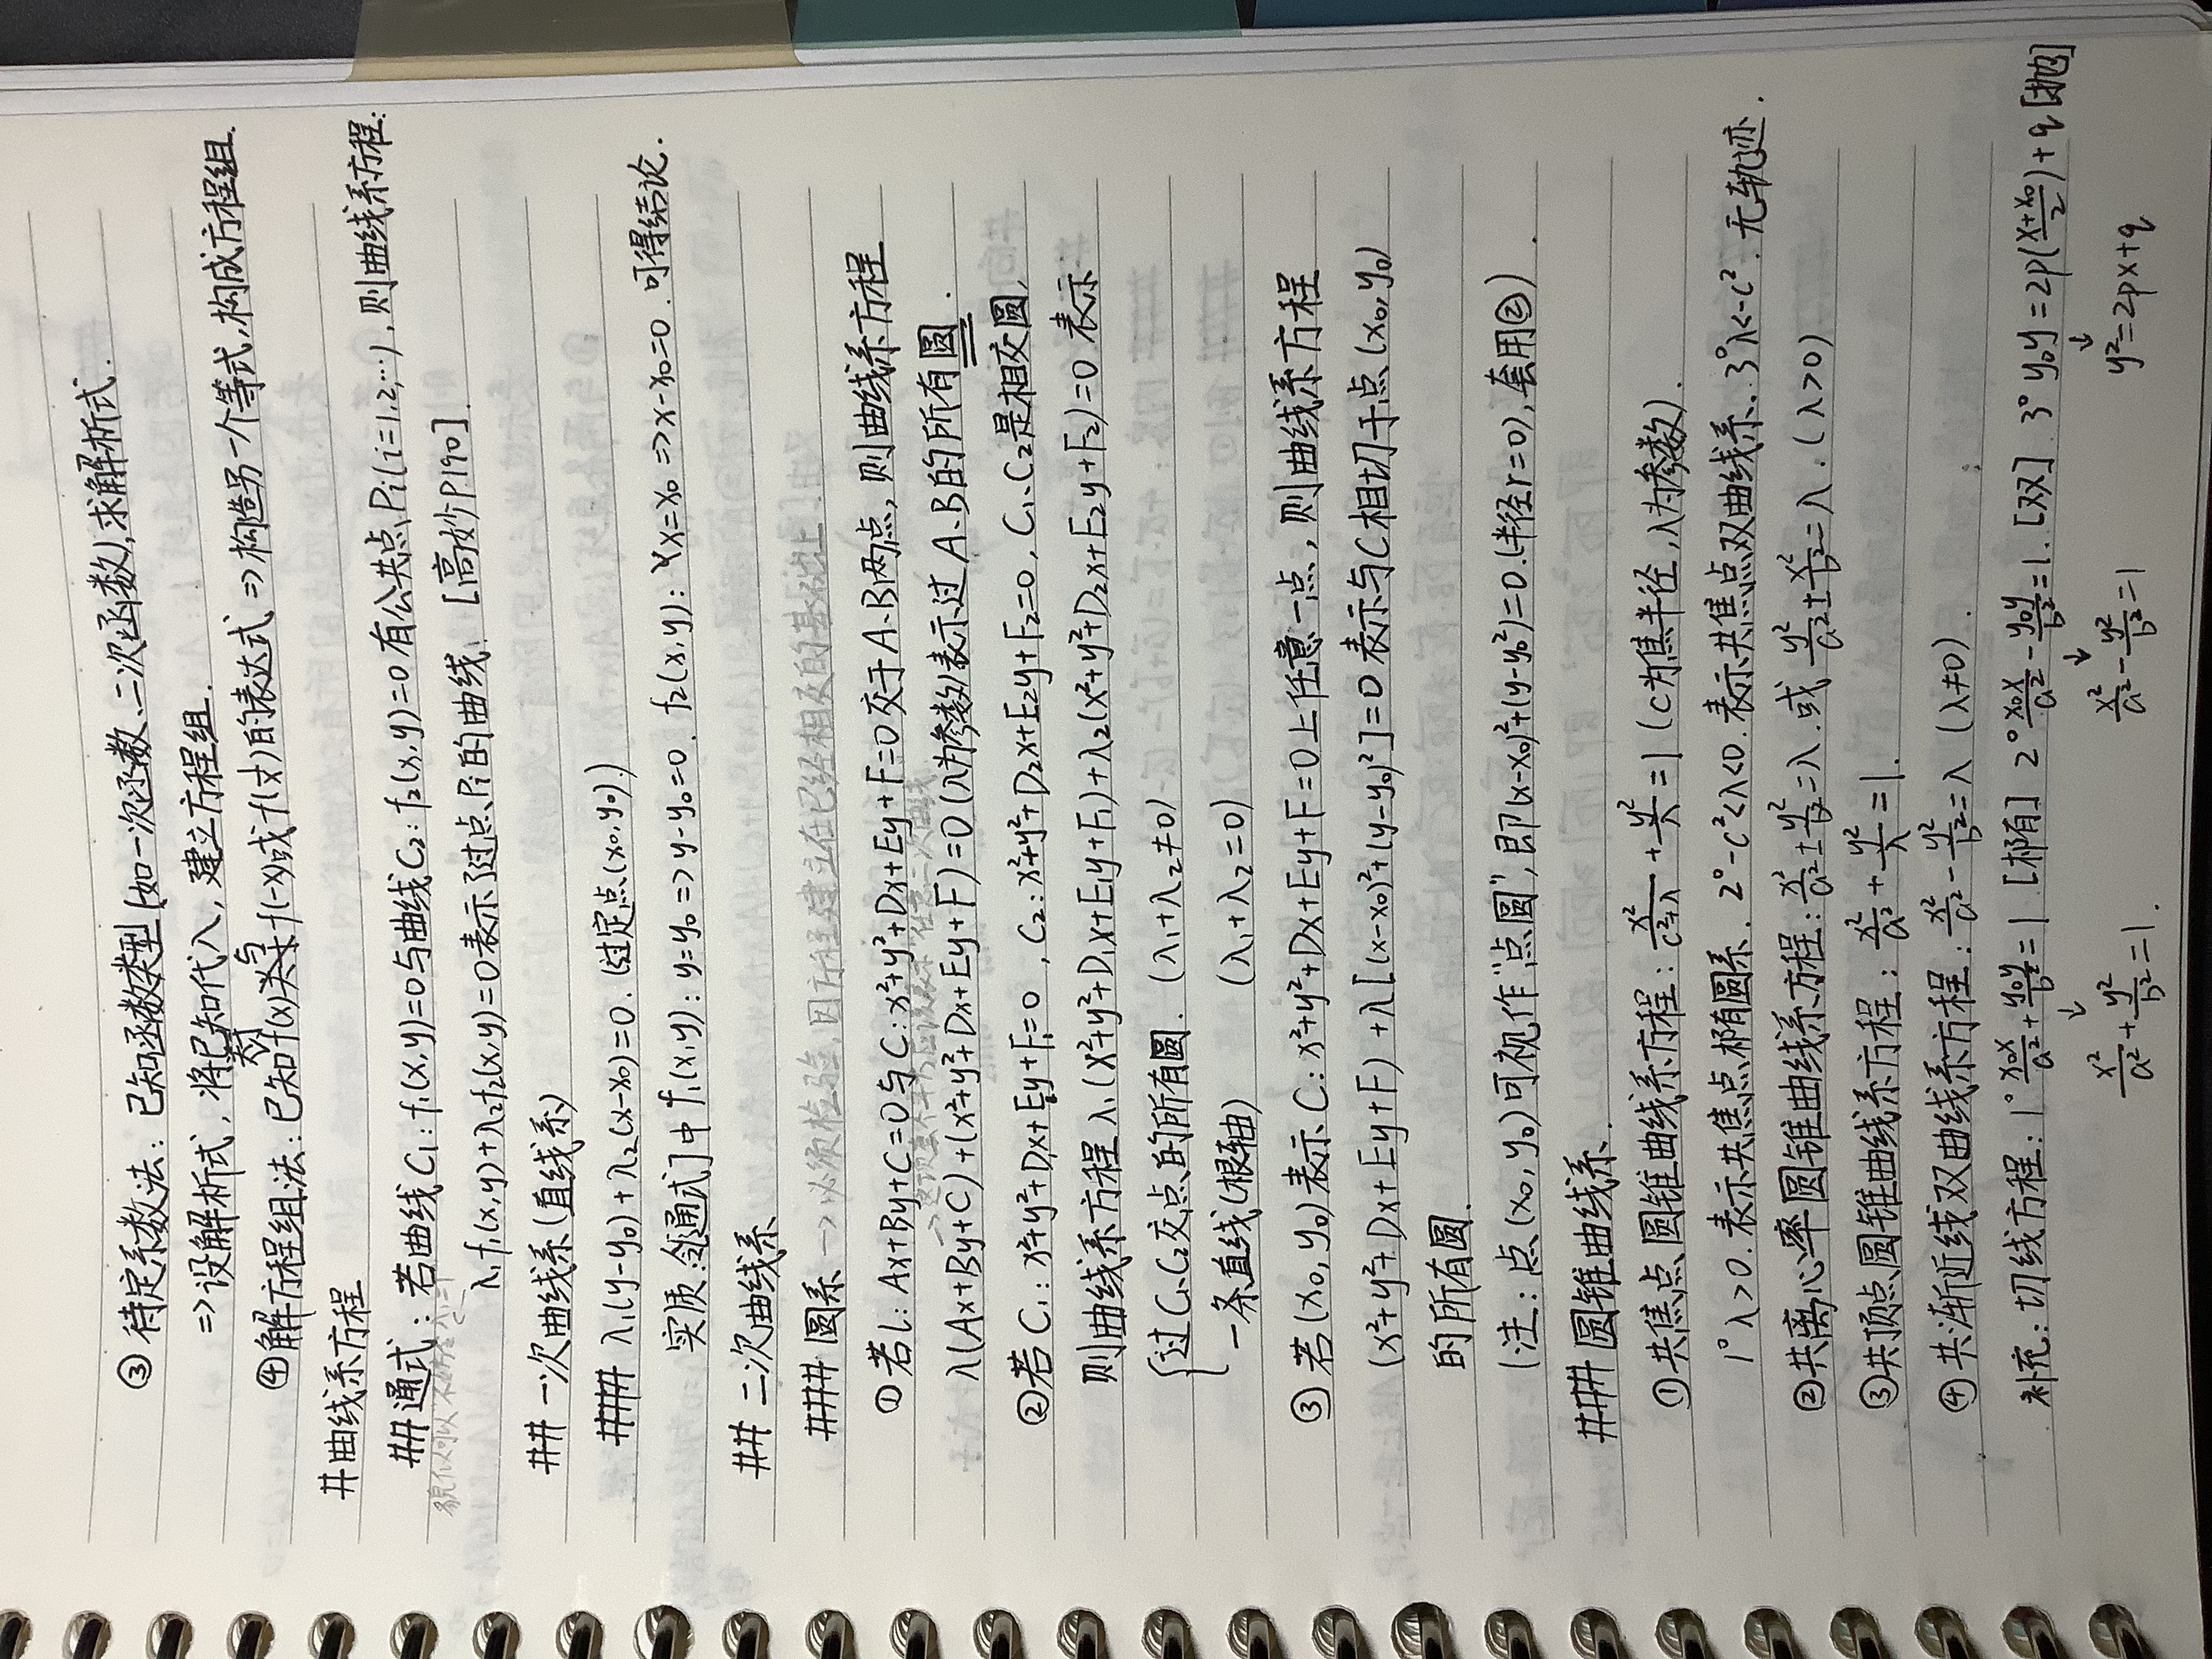 ③ 待定系数法：已知函数类型(如一次函数、二次函数),求解析式.
⇒设解析式，将已知代入，建立方程组.
④解方程组法：已知f(x)与f(-x)或f(1/x)的表达式⇒构造另一个等式,构成方程组.
#曲线系方程
##通式：若曲线C₁：f₁(x,y)=0与曲线C₂：f₂(x,y)=0有公共点Pᵢ(i=1,2,…)，则曲线系方程：
λ₁f₁(x,y)+λ₂f₂(x,y)=0表示过点Pᵢ的曲线. [高妙P190].
## 一次曲线系(直线系)
### λ₁(y-y₀)+λ₂(x-x₀)=0. (过定点(x₀,y₀).)
实质:[通式]中f₁(x,y)：y=y₀⇒y-y₀=0. f₂(x,y)：x=x₀⇒x-x₀=0. 可得结论.
## 二次曲线系
### 圆系 →必须检验,因方程建立在已经相交的基础上.
① 若l：Ax+By+C=0与C：x²+y²+Dx+Ey+F=0交于A、B两点，则曲线系方程
λ(Ax+By+C)+(x²+y²+Dx+Ey+F)=0(λ为参数)表示过A、B的所有圆.
②若C₁：x²+y²+D₁x+E₁y+F₁=0，C₂：x²+y²+D₂x+E₂y+F₂=0，C₁、C₂是相交圆,
则曲线系方程λ₁(x²+y²+D₁x+E₁y+F₁)+λ₂(x²+y²+D₂x+E₂y+F₂)=0表示
{过C₁、C₂交点的所有圆. (λ₁+λ₂≠0)
一条直线(根轴) (λ₁+λ₂=0)
③ 若(x₀,y₀)表示C：x²+y²+Dx+Ey+F=0上任意一点，则曲线系方程
(x²+y²+Dx+Ey+F)+λ[(x-x₀)²+(y-y₀)²]=0表示与C相切于点(x₀,y₀)
的所有圆.
(注：点(x₀,y₀)可视作“点圆”,即(x-x₀)²+(y-y₀²)=0.(半径r=0),套用②) .
### 圆锥曲线系.
①共焦点圆锥曲线系方程：x²/(c²+λ)+y²/λ=1(c为焦半径,λ为参数).
1°λ>0.表示共焦点椭圆系. 2°-c²<λ<0.表示共焦点双曲线系. 3°λ<-c². 无轨迹.
②共离心率圆锥曲线系方程：x²/a²±y²/b²=λ.或y²/a²±x²/b²=λ.(λ>0)
③共顶点圆锥曲线系方程：x²/a²+y²/λ=1.
④共渐近线双曲线系方程：x²/a²-y²/b²=λ(λ≠0).
补充：切线方程：1°x₀x/a²+y₀y/b²=1.[椭] 2°x₀x/a²-y₀y/b²=1.[双] 3°y₀y=2p((x+x₀)/2)+q[抛]
↓ ↓ ↓
x²/a²+y²/b²=1. x²/a²-y²/b²=1 y²=2px+q